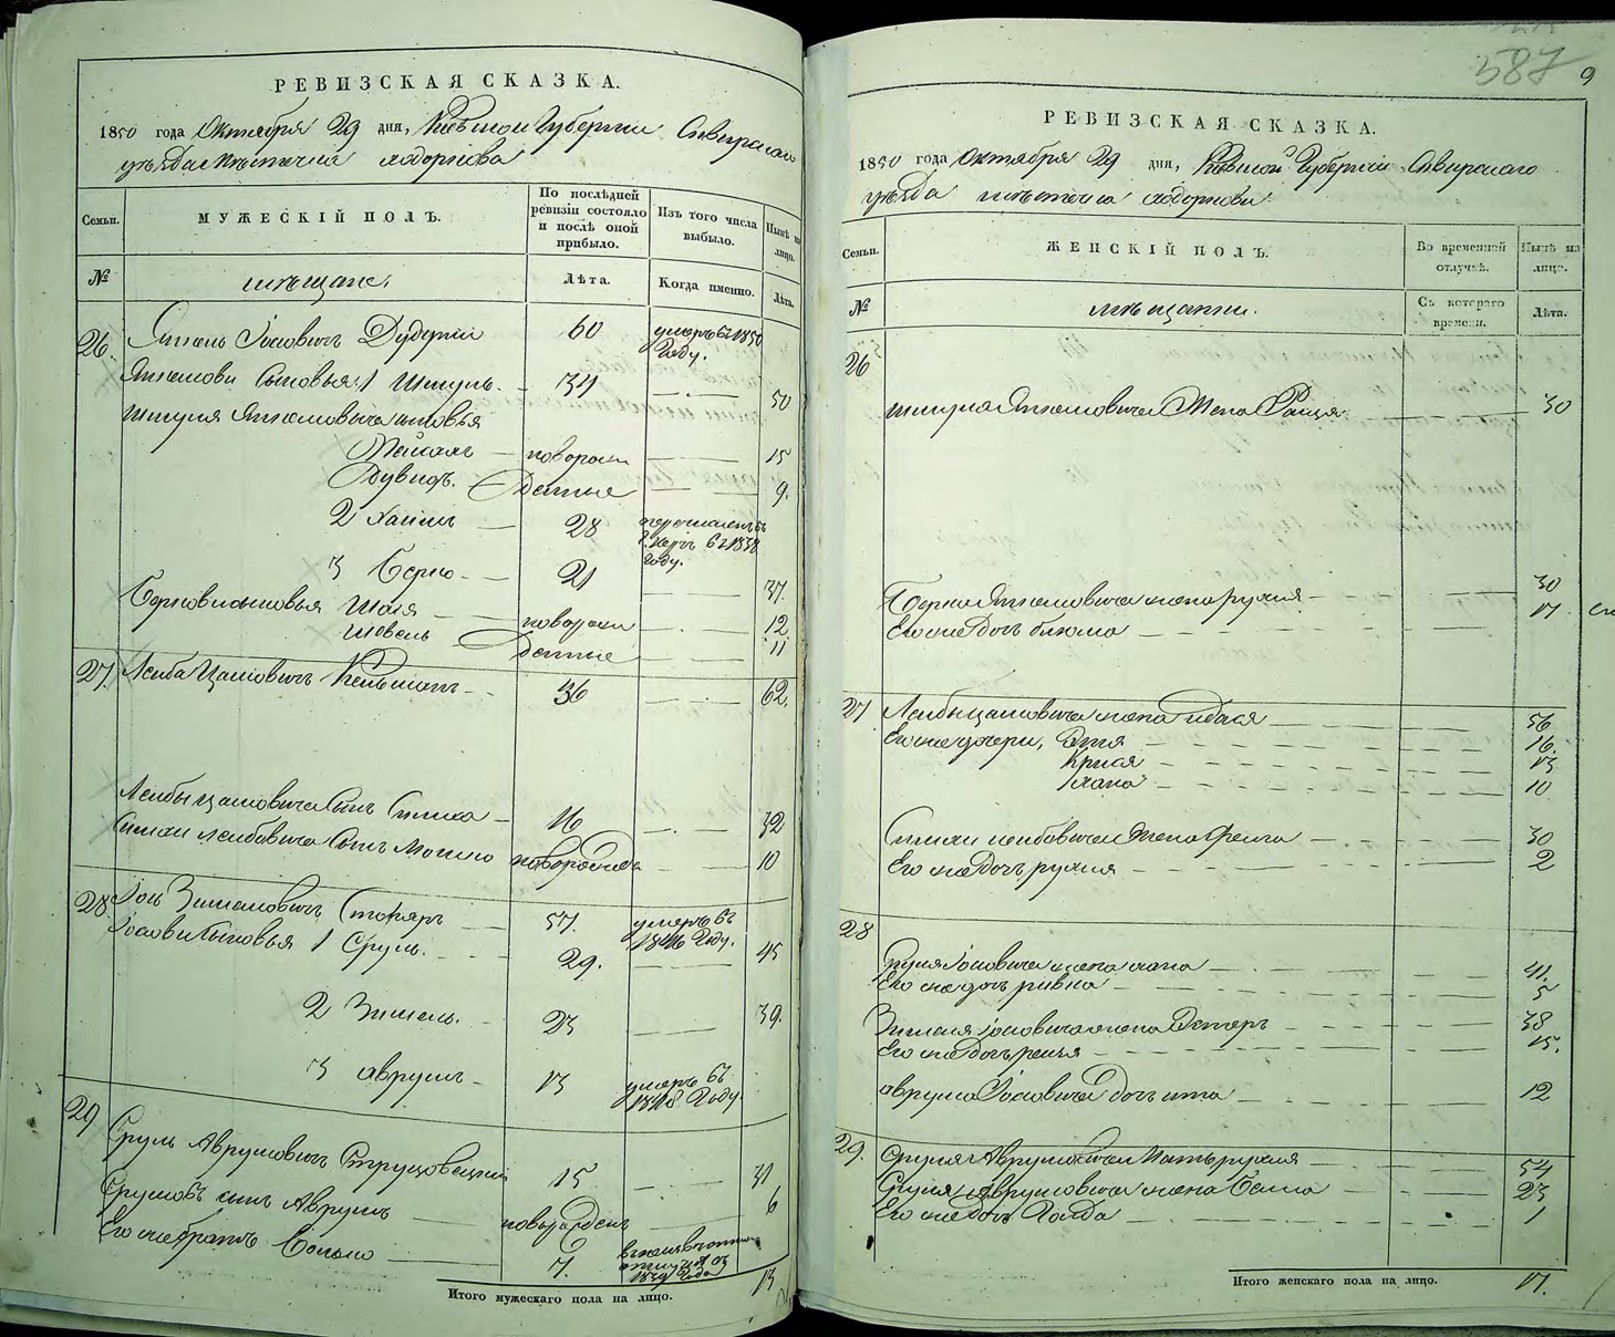 РЕВИЗСКАЯ СКАЗКА.
1850 года Октября 29 дня, Кіевской Губерніи Сквирскаго
уѣзда мѣстечка Ходоркова
Семьи.
МУЖЕСКІЙ ПОЛЪ.
По послѣдней ревизіи состояло и послѣ оной прибыло.
Изъ того числа выбыло.
Нынѣ на лицо.
№
мѣщане.
Лѣта.
Когда именно.
Лѣта.
26. Іосіовичъ 60 умеръ въ 1850 Году.
сыновья 1 Шмуль 34 50
Шмуля сыновья
новорож 15
Дувидъ денные 9.
2 Хаимъ 28 перечисленъ въ 1838 году.
3 Берко 21 37.
Берковы сыновья Шая новорож 12
Шовель денные 11
27. Лейба Цаліовичъ 36 62.
Лейбы Цаліовича Сынъ Симха 16 32
Симхи Лейбовича Сынъ Мошко новорожденъ 10
28. Іось Зишелиовичъ Столяръ 57. умеръ въ 1846 Году.
Іосіовы Сыновья 1 Сруль. 29. 45
2 Зишель. 23 39.
3 Аврумъ 13 умеръ въ 1848 Году
29 Сруль Аврумовичъ 15 31
Срулювъ сынъ Аврумъ новорожденъ 6
Его же братъ Волько 7. отлучкѣ съ 1849 Года
Итого мужескаго пола на лицо. 13
587
9
РЕВИЗСКАЯ СКАЗКА.
1850 года Октября 29 дня, Кіевской Губерніи Сквирскаго
уѣзда мѣстечка Ходоркова
Семьи.
ЖЕНСКІЙ ПОЛЪ.
Во временной отлучкѣ.
Нынѣ на лицо.
№
мѣщанки.
Съ котораго времени.
Лѣта.
26
Шмуля Жена 50
Берка жена рухля 30
Его же дочь блюма 17
27 Лейбы Цаліовича жена 56
Его же дочери, Этя 16.
Крися 13
Хана 10
Симхи Лейбовича Жена Фейга 30
Его же дочь рухля 2
28
Сруля Іосіовича жена хана 41.
Его же дочь ривка 5
Зишеля Іосіовича жена Эстеръ 38
Его же дочь рейзя 15.
Аврума Іосіовича дочь ита 12
29. Сруля Аврумовича Мать рухля 54
Сруля Аврумовича жена Бейла 23
Его же дочь Голда 1
Итого женскаго пола на лицо. 17.